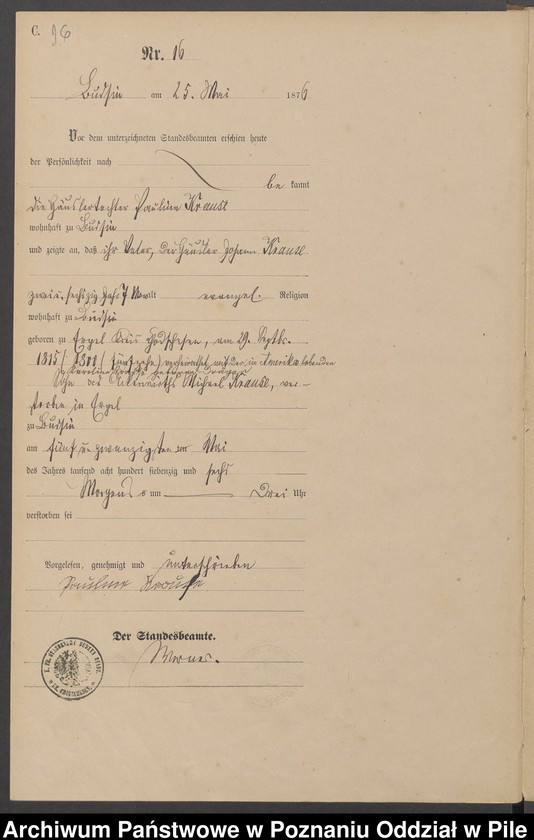 C. 96
Nr. 16
Budsin am 25. Mai 1876
Vor dem unterzeichneten Standesbeamten erschien heute
der Persönlichkeit nach
be kannt
die Häuslertochter Pauline Krause
wohnhaft zu Budsin
und zeigte an, daß ihr Vater, der Häusler Johann Krause
zwei u. sechzig Jahr 7 Mon alt evangel. Religion
wohnhaft zu Budsin
geboren zu Kreis am 29. Septbr.
1813 verheirathet in Amerika lebenden
Sohn des Michael Krause, ver-
storben in
zu Budsin
am fünf u. zwanzigsten Mai
des Jahres tausend acht hundert siebenzig und sechs
Morgens um drei Uhr
verstorben sei
Vorgelesen, genehmigt und unterschrieben
Pauline Krause
Der Standesbeamte.
Archiwum Państwowe w Poznaniu Oddział w Pile